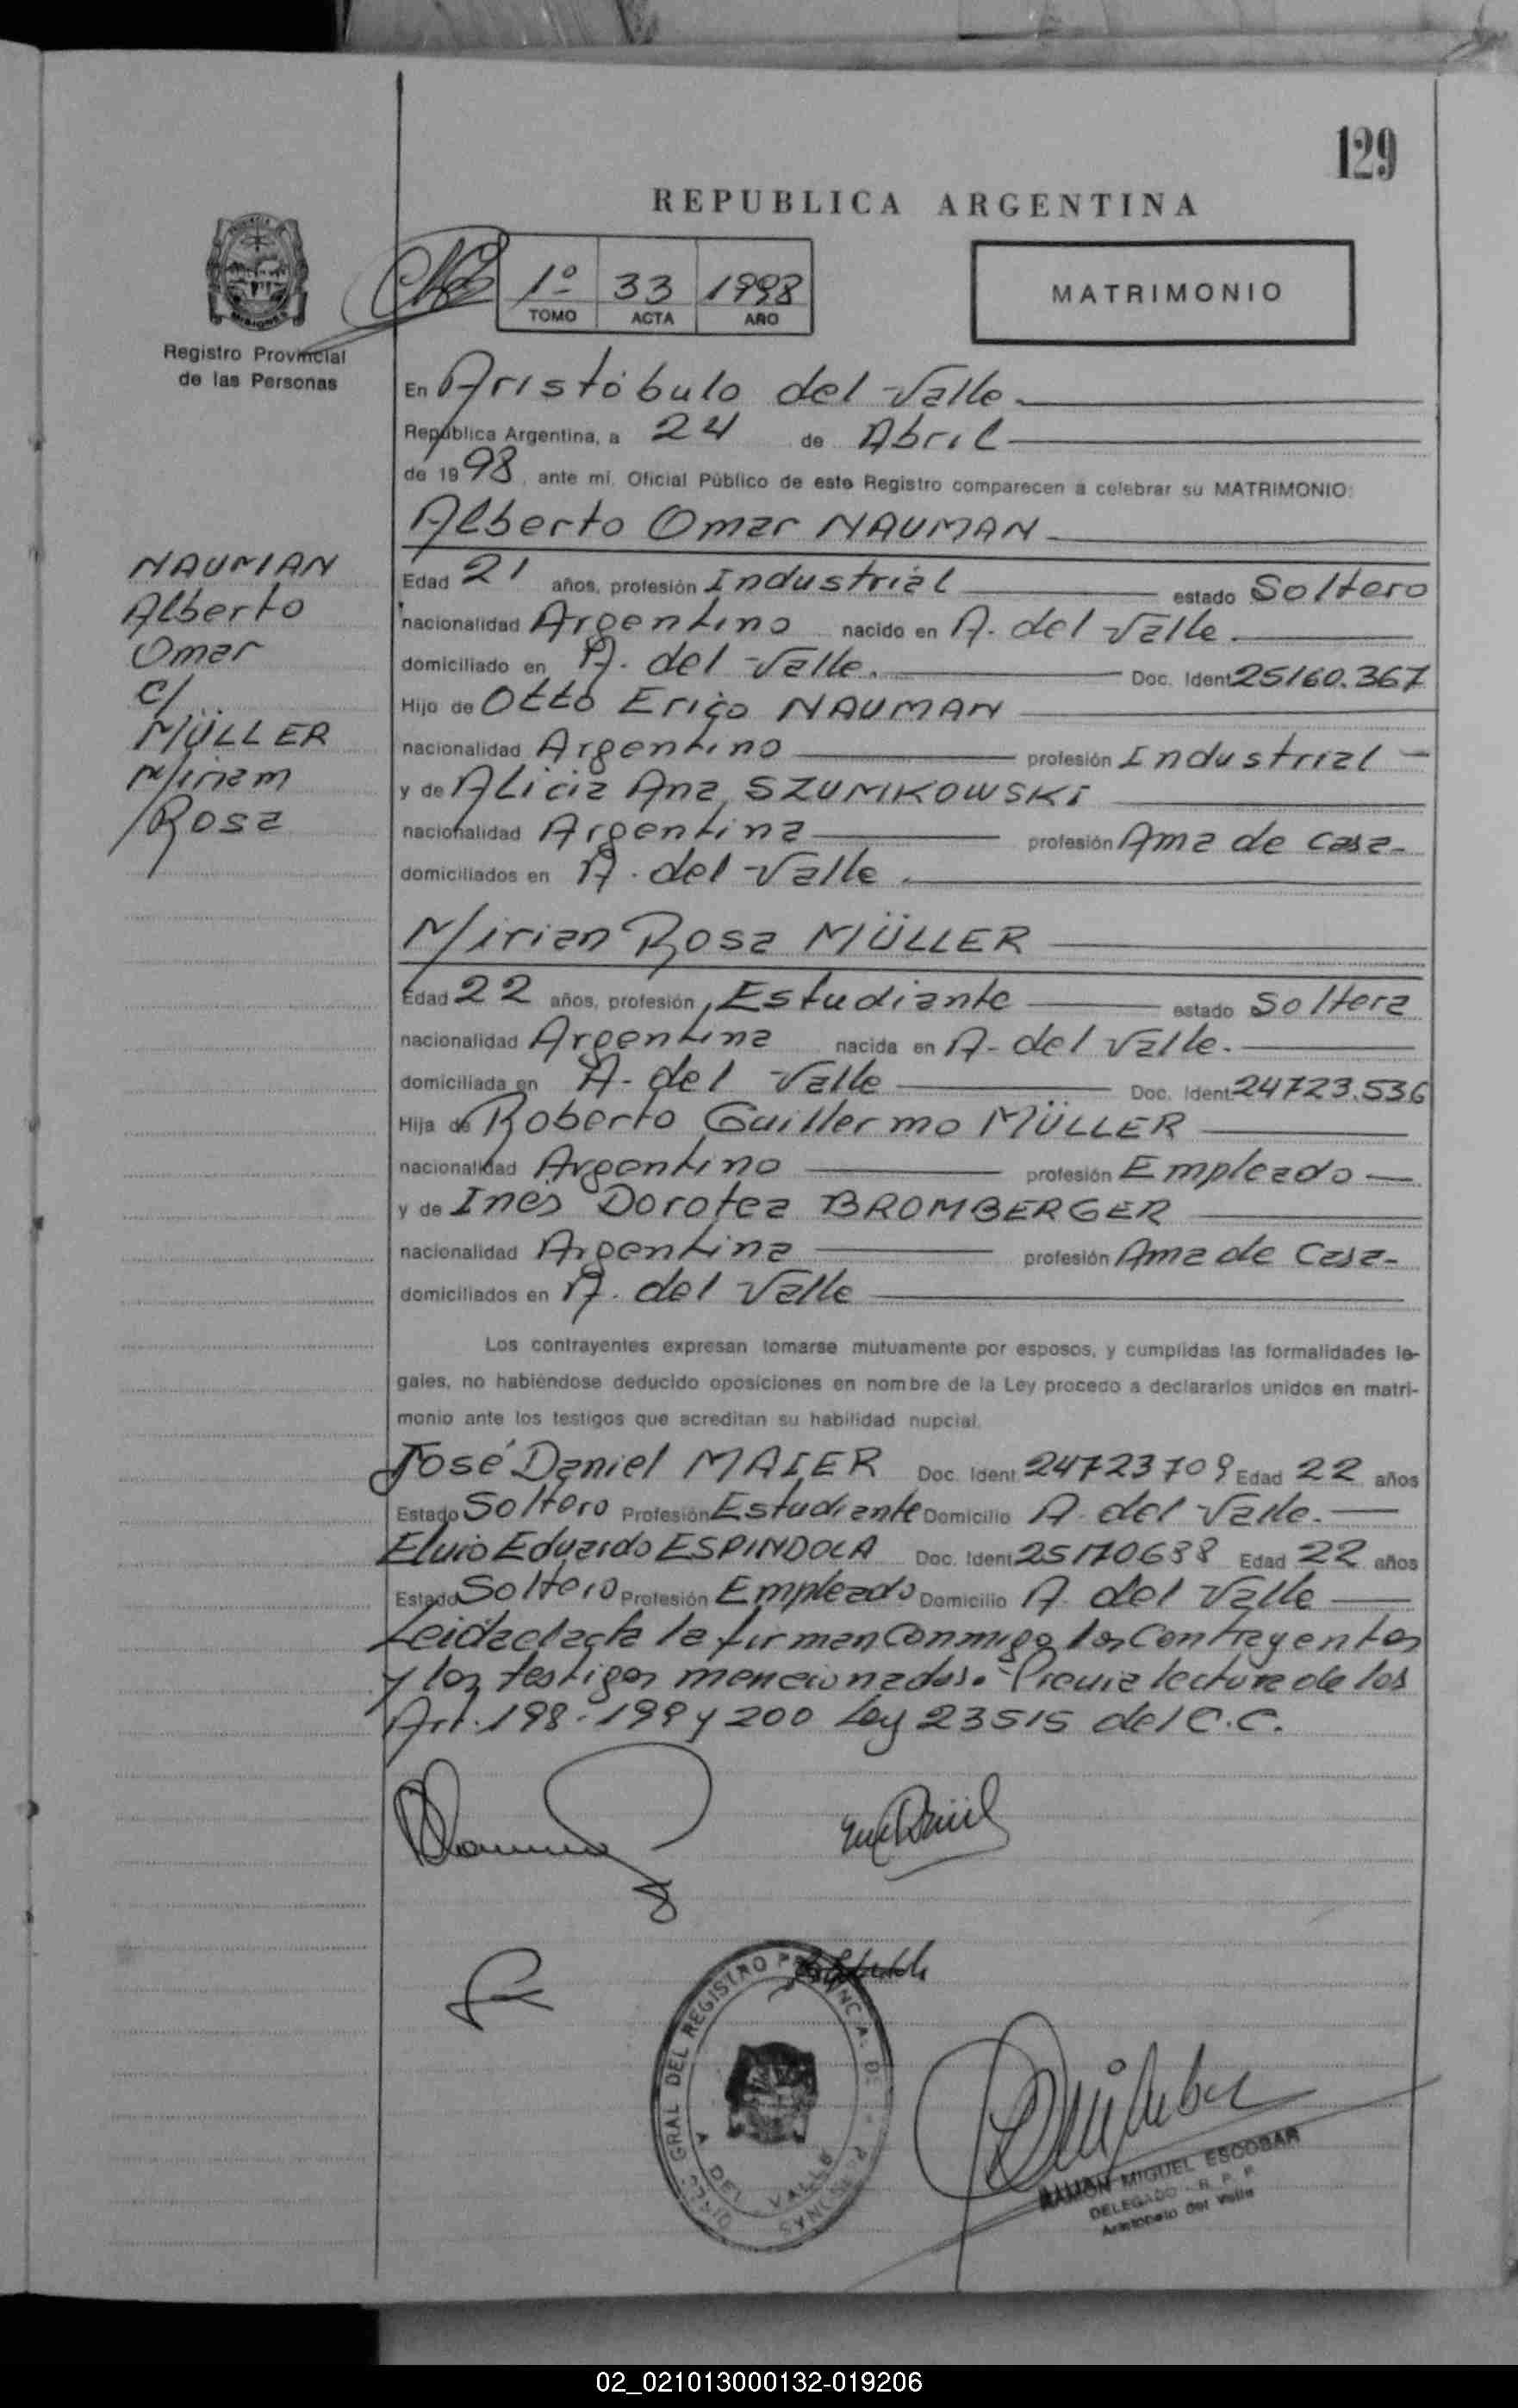 129
REPUBLICA ARGENTINA
1º 33 1998
TOMO ACTA AÑO
MATRIMONIO
MISIONES
Registro Provincial
de las Personas
NAUMAN
Alberto
Omar
c/
MÜLLER
Miriam
Rosa
En Aristóbulo del Valle
República Argentina, a 24 de Abril
de 1998, ante mi, Oficial Público de este Registro comparecen a celebrar su MATRIMONIO:
Alberto Omar NAUMAN
Edad 21 años, profesión Industrial estado Soltero
nacionalidad Argentino nacido en A. del Valle.
domiciliado en A. del Valle. Doc. Ident 25160.367
Hijo de Otto Erico NAUMAN
nacionalidad Argentino profesión Industrial
y de Alicia Ana SZUMKOWSKI
nacionalidad Argentina profesión Ama de casa
domiciliados en A. del Valle.
Mirian Rosa MÜLLER
Edad 22 años, profesión Estudiante estado Soltera
nacionalidad Argentina nacida en A. del Valle.
domiciliada en A. del Valle Doc. Ident 24723.536
Hija de Roberto Guillermo MÜLLER
nacionalidad Argentino profesión Empleado
y de Inés Dorotea BROMBERGER
nacionalidad Argentina profesión Ama de Casa
domiciliados en A. del Valle
Los contrayentes expresan tomarse mutuamente por esposos, y cumplidas las formalidades le-
gales, no habiéndose deducido oposiciones en nombre de la Ley procedo a declararlos unidos en matri-
monio ante los testigos que acreditan su habilidad nupcial.
José Daniel MAIER Doc. Ident. 24723709 Edad 22 años
Estado Soltero Profesión Estudiante Domicilio A. del Valle.
Elvio Eduardo ESPINDOLA Doc. Ident 25170638 Edad 22 años
Estado Soltero Profesión Empleado Domicilio A. del Valle
Leída el acta la firman conmigo los Contrayentes
y los testigos mencionados. Previa lectura de los
Art. 198-199 y 200 Ley 23515 del C.C.
DIREC. GRAL DEL REGISTRO PROVINCIAL DE PERSONAS
A DEL VALLE
RAMON MIGUEL ESCOBAR
DELEGADO - R. P. P.
Aristobulo del Valle
02_021013000132-019206